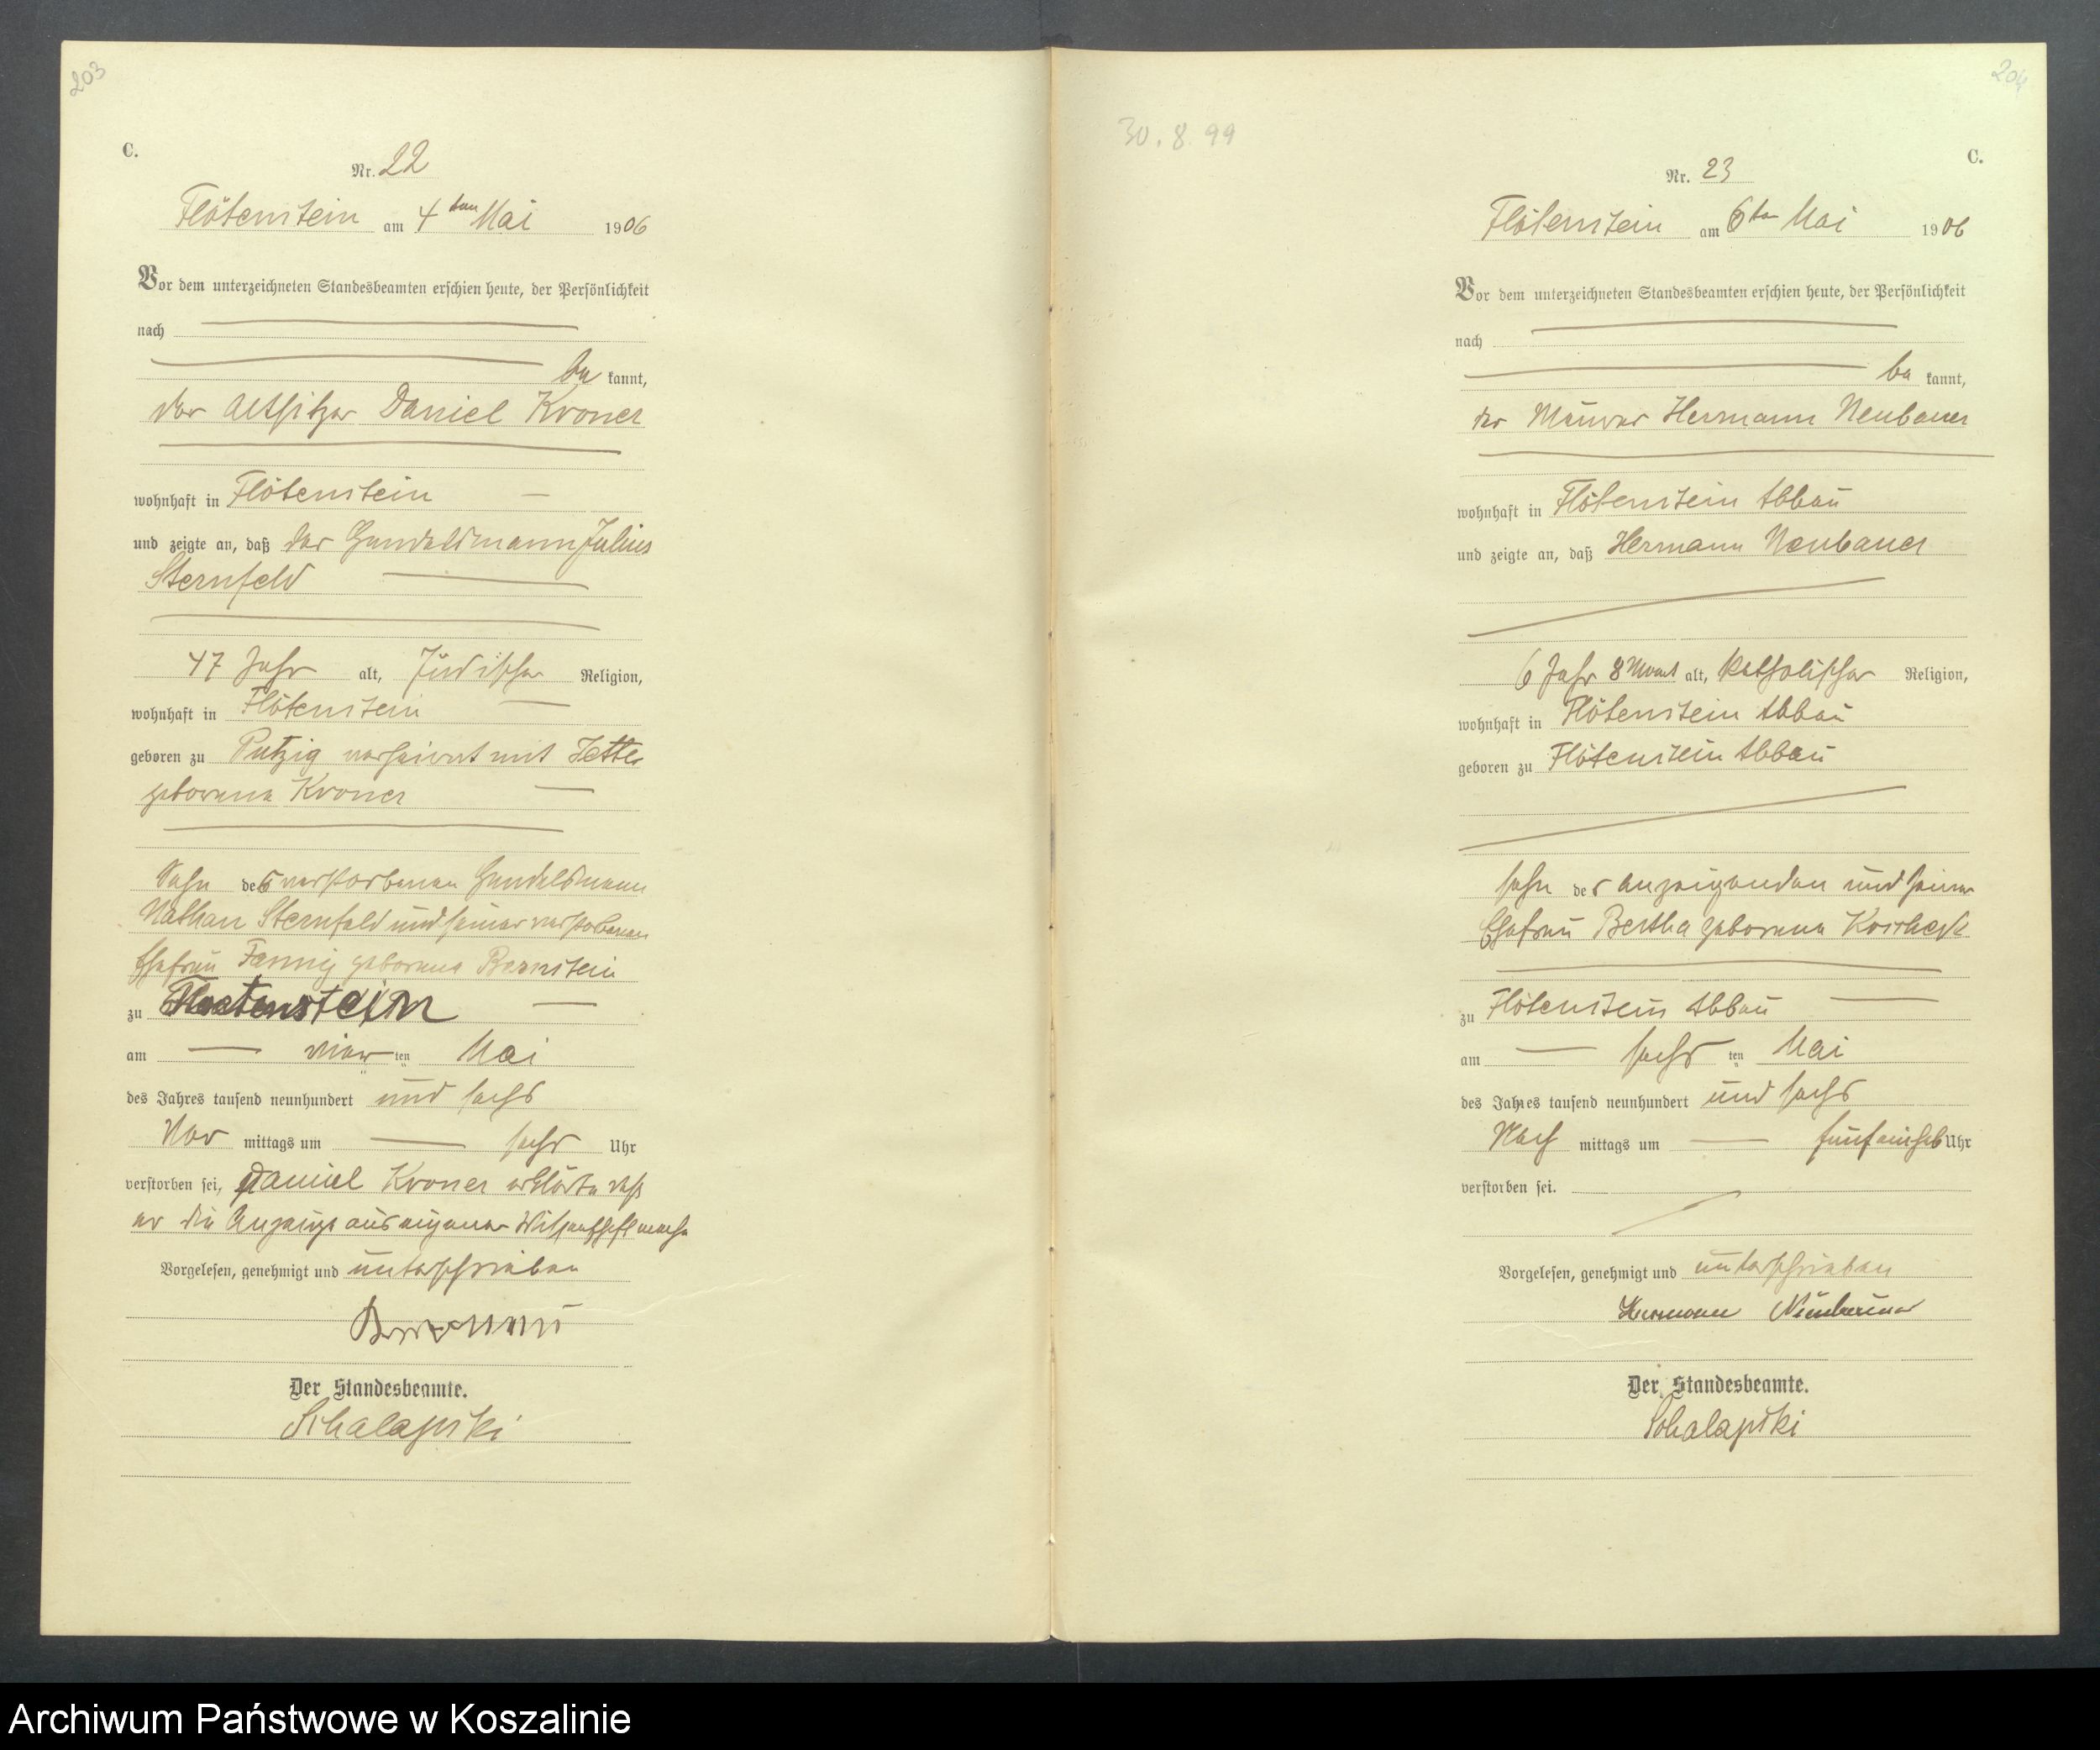 203
C.
Nr. 22
Flötenstein am 4ten Mai 1906
Vor dem unterzeichneten Standesbeamten erschien heute, der Persönlichkeit
nach
be kannt,
der Altsitzer Daniel Kroner
wohnhaft in Flötenstein
und zeigte an, daß der Handelsmann Julius
Sternfeld
47 Jahr alt, Jüdischer Religion,
wohnhaft in Flötenstein
geboren zu Putzig verheirat mit Jette
geborene Kroner
Sohn des verstorbenen Handelsmann
Nathan Sternfeld und seiner verstorbenen
Ehefrau Fanny geborene Bernstein
zu Floetenstein
am vier ten Mai
des Jahres tausend neunhundert und sechs
Vor mittags um sechs Uhr
verstorben sei, Daniel Kroner erklärte daß
er die Anzeige aus eigener Wissenschaft mache
Vorgelesen, genehmigt und unterschrieben
Der Standesbeamte.
Schalapski
204
30.8.99
C.
Nr. 23
Flötenstein am 6ten Mai 1906
Vor dem unterzeichneten Standesbeamten erschien heute, der Persönlichkeit
nach
be kannt,
der Maurer Hermann Neubauer
wohnhaft in Flötenstein Abbau
und zeigte an, daß Hermann Neubauer
6 Jahr 8 Monat alt, katholischer Religion,
wohnhaft in Flötenstein Abbau
geboren zu Flötenstein Abbau
Sohn der Anzeigenden und seiner
Ehefrau Bertha geborene
zu Flötenstein Abbau
am sechs ten Mai
des Jahres tausend neunhundert und sechs
Nach mittags um fünfeinhalb Uhr
verstorben sei.
Vorgelesen, genehmigt und unterschrieben
Hermann Neubauer
Der Standesbeamte.
Schalapski
Archiwum Państwowe w Koszalinie